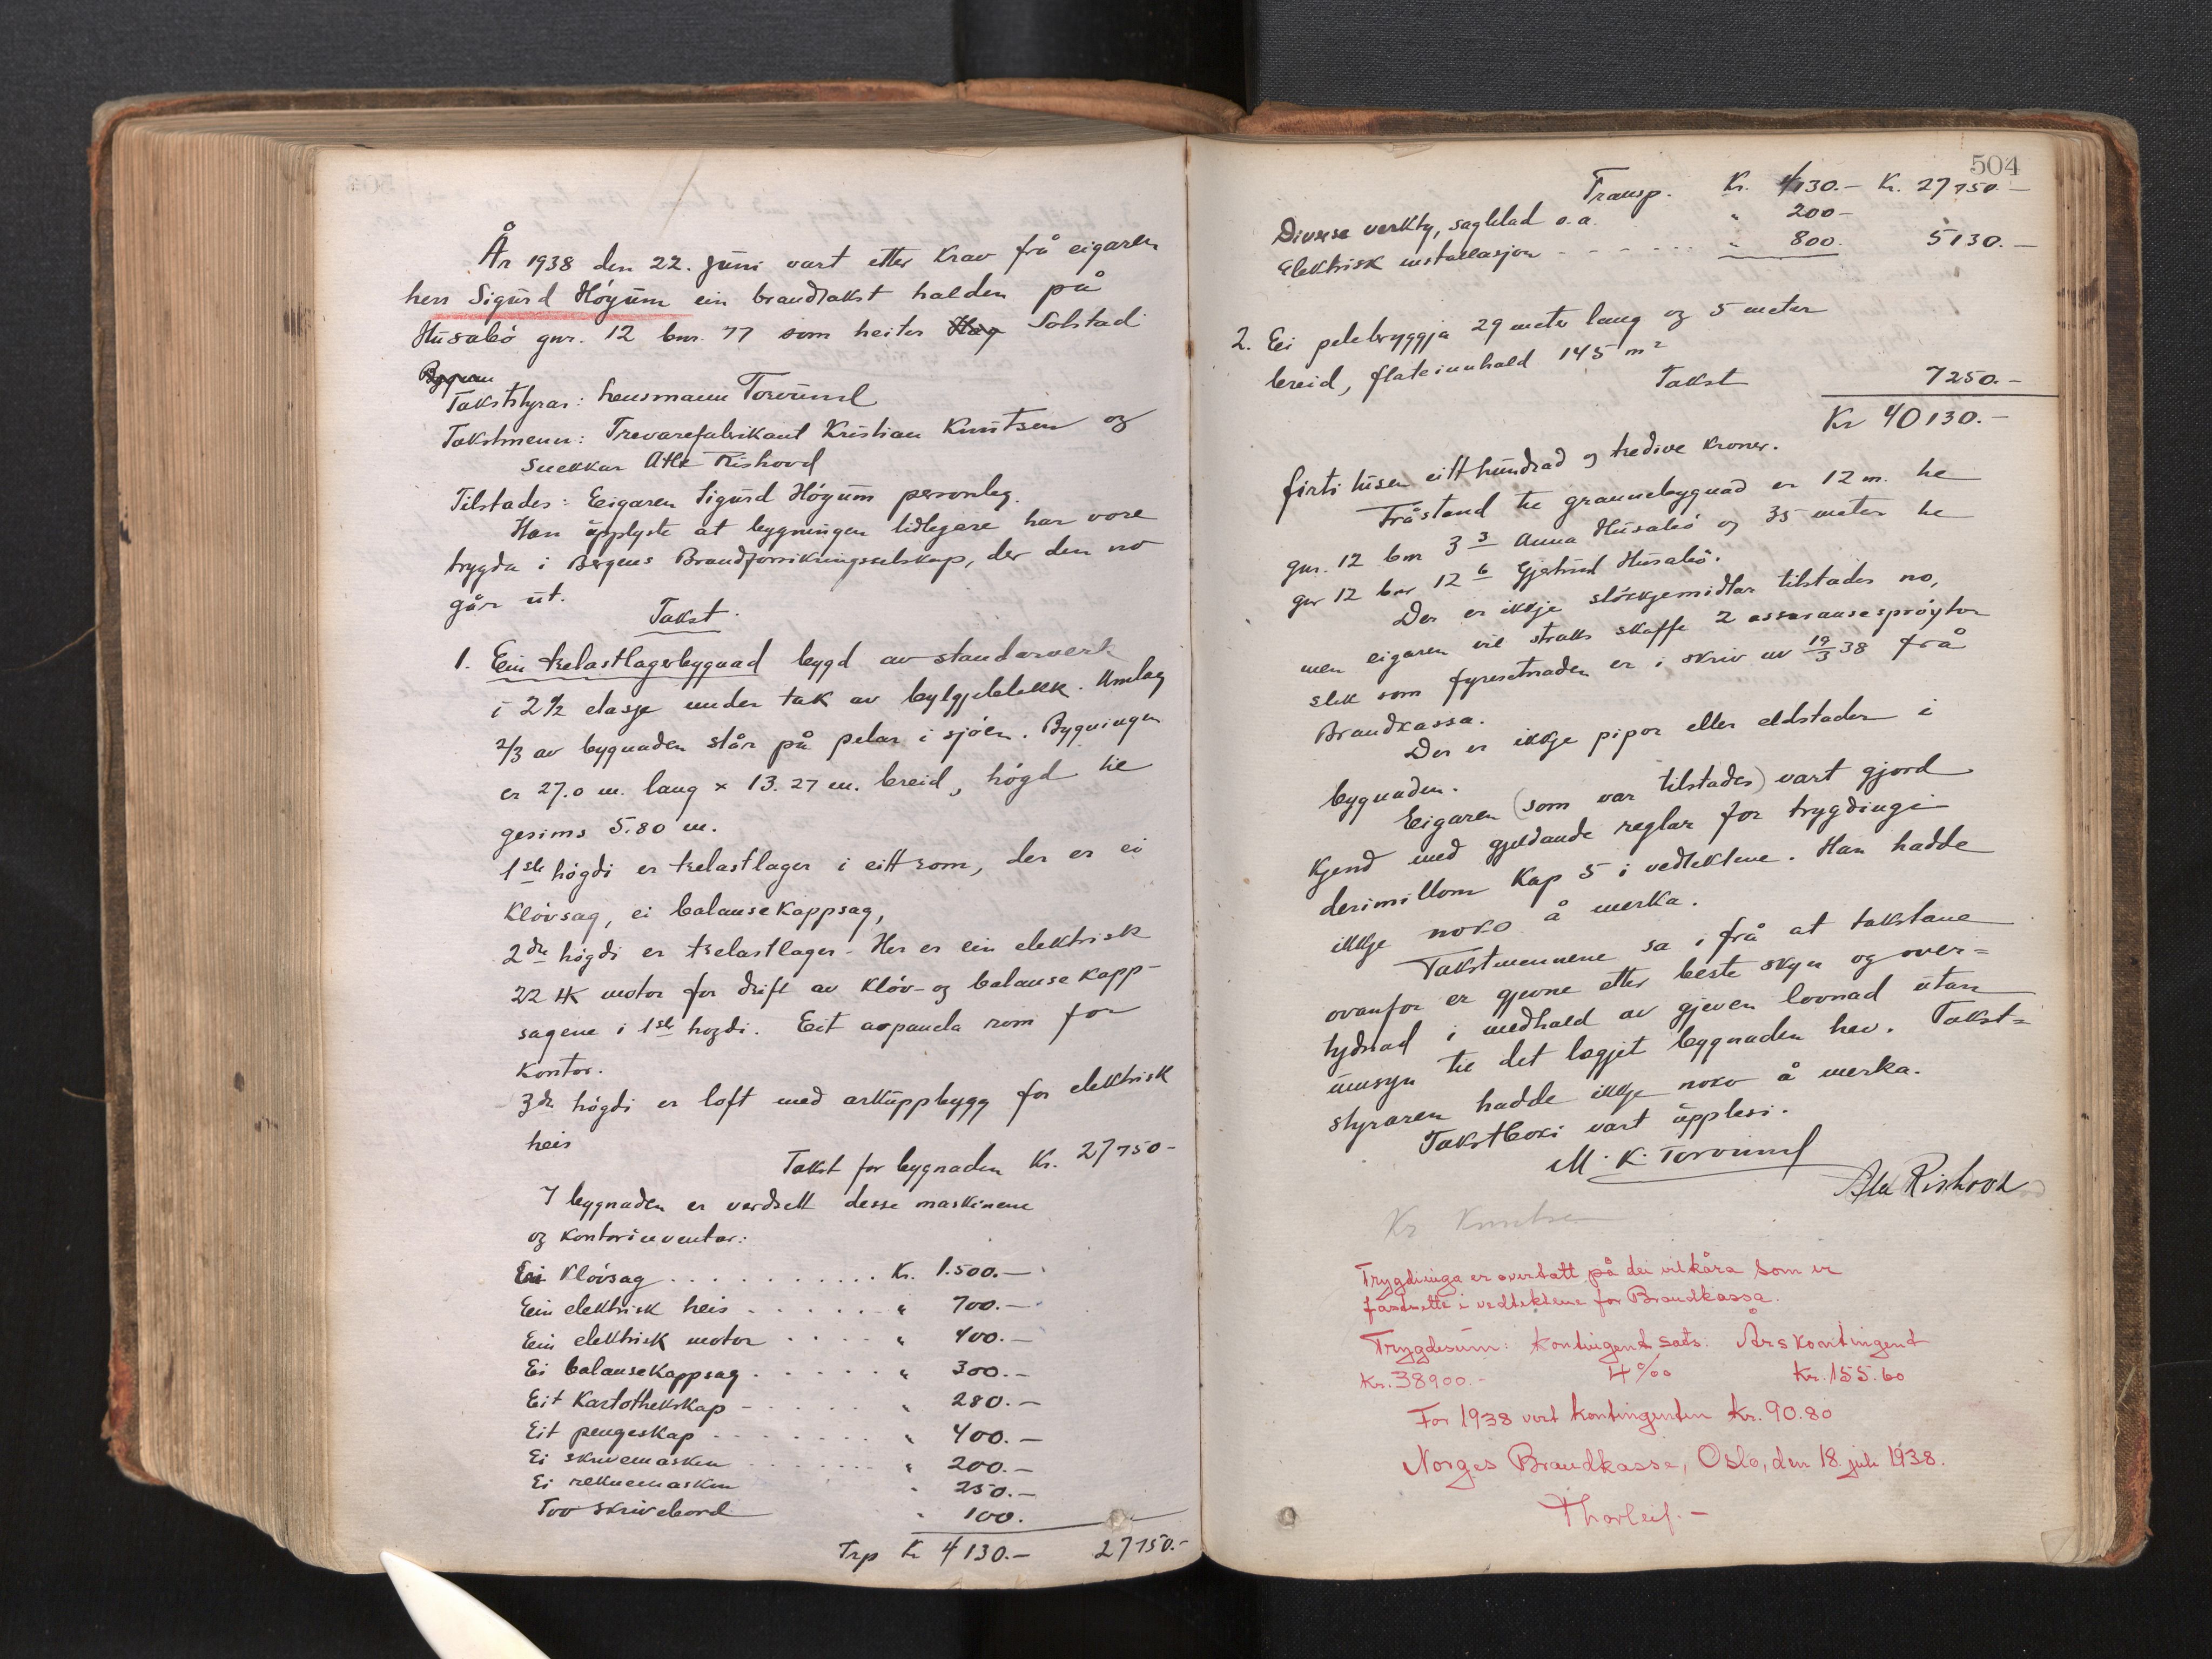 År 1938 den 22. juni vart etter krav frå eigaren
herr Sigurd Høyum ein brandtakst halden på
Husabø gnr. 12 bnr. 77 som heiter Solstad
Takststyrar: Lensmann Torvund
Takstmenn: Trevarefabrikant Kristian Knutsen og
snekkar Atle Rishovd
Tilstades: Eigaren Sigurd Høyum personleg.
Han upplyste at bygningen tidlegare har vore
trygda i Bergens Brandforsikringsselskap, der den no
går ut.
Takst.
1. Ein trelastlagerbygnad bygd av standerverk
i 2 1/2 etasje under tak av bylgjeblekk. Umlag
2/3 av bygnaden står på pelar i sjøen. Bygningen
er 27.0 m. lang x 13.27 m. breid, høgd til
gesims 5.80 m.
1ste høgdi er trelastlager i eitt rom, der er ei
kløvsag, ei balansekappsag,
2dre høgdi er trelastlager - Her er ein elektrisk
22 HK motor for drift av kløv- og balansekapp-
sagene i 1ste høgdi. Eit avpanela rom for
kontor.
3dre høgdi er loft med arkuppbygg for elektrisk
heis
Takst for bygnaden Kr. 27750-
I bygnaden er verdsett desse maskinene
og kontorinventar:
Ei kløvsag . . . . . . . . . . Kr. 1.500.-
Ein elektrisk heis . . . . . . " 700.-
Ein elektrisk motor . . . . " 400.-
Ei balansekappsag . . . . . " 300.-
Eit kartothekskap - . . . . " 280.-
Eit pengeskap . . . . . . . " 400.-
Ei skrivemaskin . . . . . . " 200.-
Ei reknemaskin " 250.-
Tvo skrivebord " 100.
Trp Kr 4130.- 27750.-
504
Transp. Kr. 4130.- Kr. 27750.-
Diverse verkty, sagblad o.a. " 200-
Elektrisk installasjon - - - . . . " 800. 5130.-
2. Ei pelebryggja 29 meter lang og 5 meter
breid, flateinnhald 145 m2
Takst 7250.-
Kr 40130.-
firti tusen eitt hundrad og tredive kroner.
Fråstand til grannebygnad er 12 m. til
gnr. 12 bnr 3 3 Anna Husabø og 35 meter til
gnr 12 bnr 12 6 Gjertrud Husabø.
Der er ikkje sløkkjemidlar tilstades no,
men eigaren vil straks skaffe 2 assuransesprøytor
slik som fyresetnaden er i skriv av 19/3 38 frå
Brandkassa.
Der er ikkje pipor eller eldstader i
bygnaden.
Eigaren (som var tilstades) vart gjord
kjend med gjeldande reglar for trygdingi
derimillom kap 5 i vedtektene. Han hadde
ikkje noko å merka.
Takstmennene sa i frå at takstane
ovanfor er gjevne etter beste skyn og over=
tydnad i medhald av gjeven lovnad utan
umsyn til det lagjet bygnaden hev. Takst=
styraren hadde ikkje noko å merka.
Takstboki vart upplesi.
M. K. Torvund
Atle Rishovd
Kr Knutsen
Trygdinga er overtatt på dei vilkåra som er
fastsette i vedtektene for Brandkassa.
Trygdesum: kontingent sats: Årskontingent
Kr. 38900.- 4 ‰ kr. 155.60
For 1938 vert kontingenten kr. 90.80
Norges Brandkasse, Oslo, den 18. juli 1938.
Thorleif. -